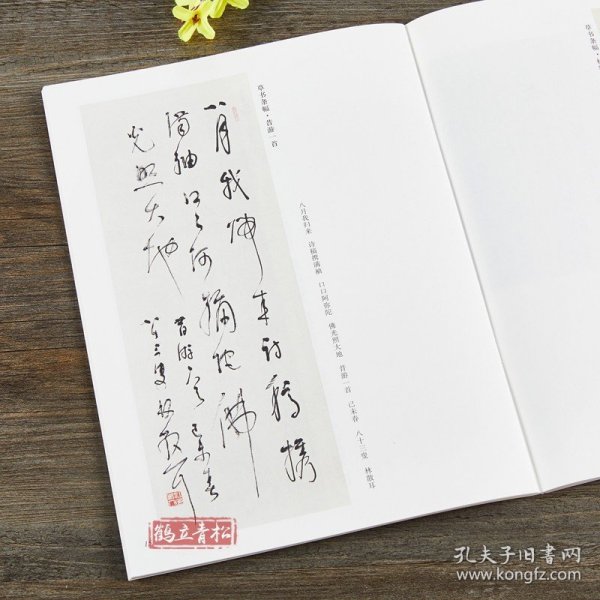 草书条幅·昔游一首
八月我归来 诗稿携满舳 口口阿弥陀 佛光照大地 昔游一首 己未春 八十三叟 林散耳
八月我归来诗稿携
满舳口口阿弥陀佛
光照大地
昔游一首 己未春
八十三叟 散耳
鹤立青松
孔夫子旧书网
www.kongfz.com